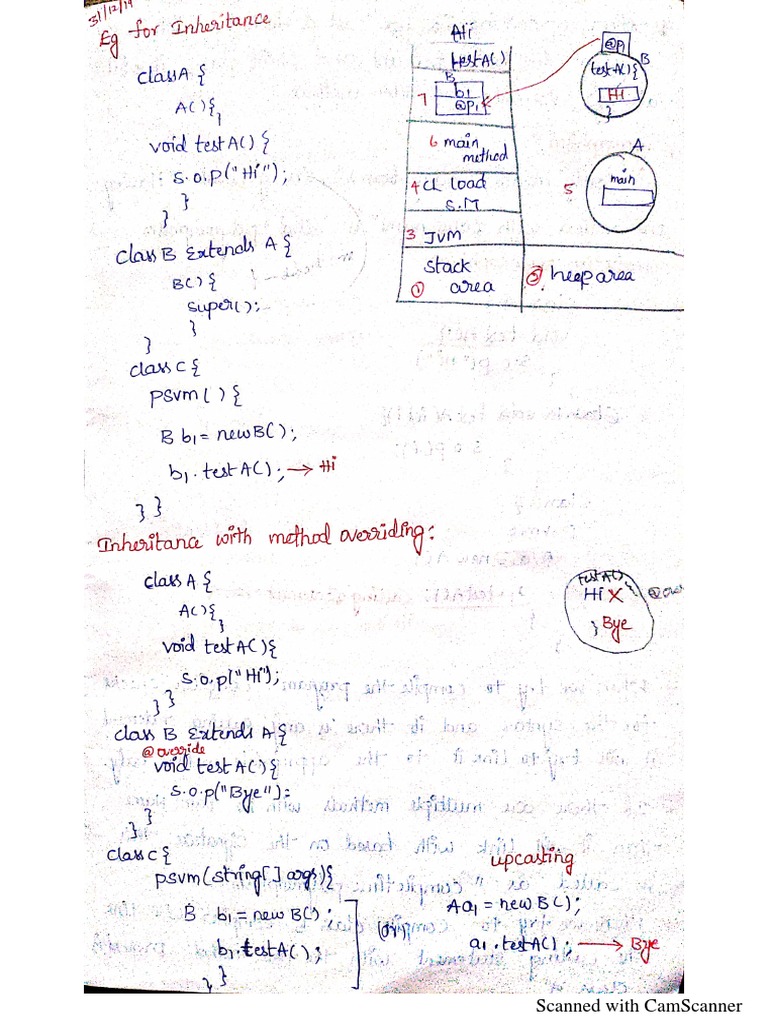 31/12/19
Eg for Inheritance
class A {
A(){
}
void testA() {
S.O.P("Hi");
}
}
class B Extends A {
B() {
super();
}
}
class C {
PSVM( ) {
B b1 = new B();
b1.testA(); → Hi
} }
Hi
testA()
B
7
b1
@P1
6 main
method
4 CL load
S.M
3 JVM
stack
① area
② heap area
@P1
B
testA(){
Hi
}
A
5
main
Inheritance with method overriding:
class A {
A(){
}
void testA(){
S.O.P("Hi");
} }
class B Extends A {
@override
void testA(){
S.O.P("Bye");
}
}
class C {
PSVM(string[] args){
B b1 = new B();
b1.testA();
} }
(or)
testA(){
Hi X
Bye
}
upcasting
A a1 = new B();
a1.testA(); → Bye
Scanned with CamScanner